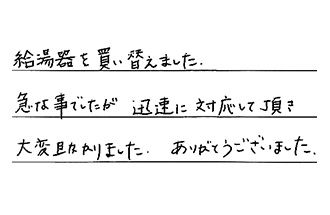 給湯器を買い替えました.
急な事でしたが 迅速に対応して頂き
大変助かりました. ありがとうございました.